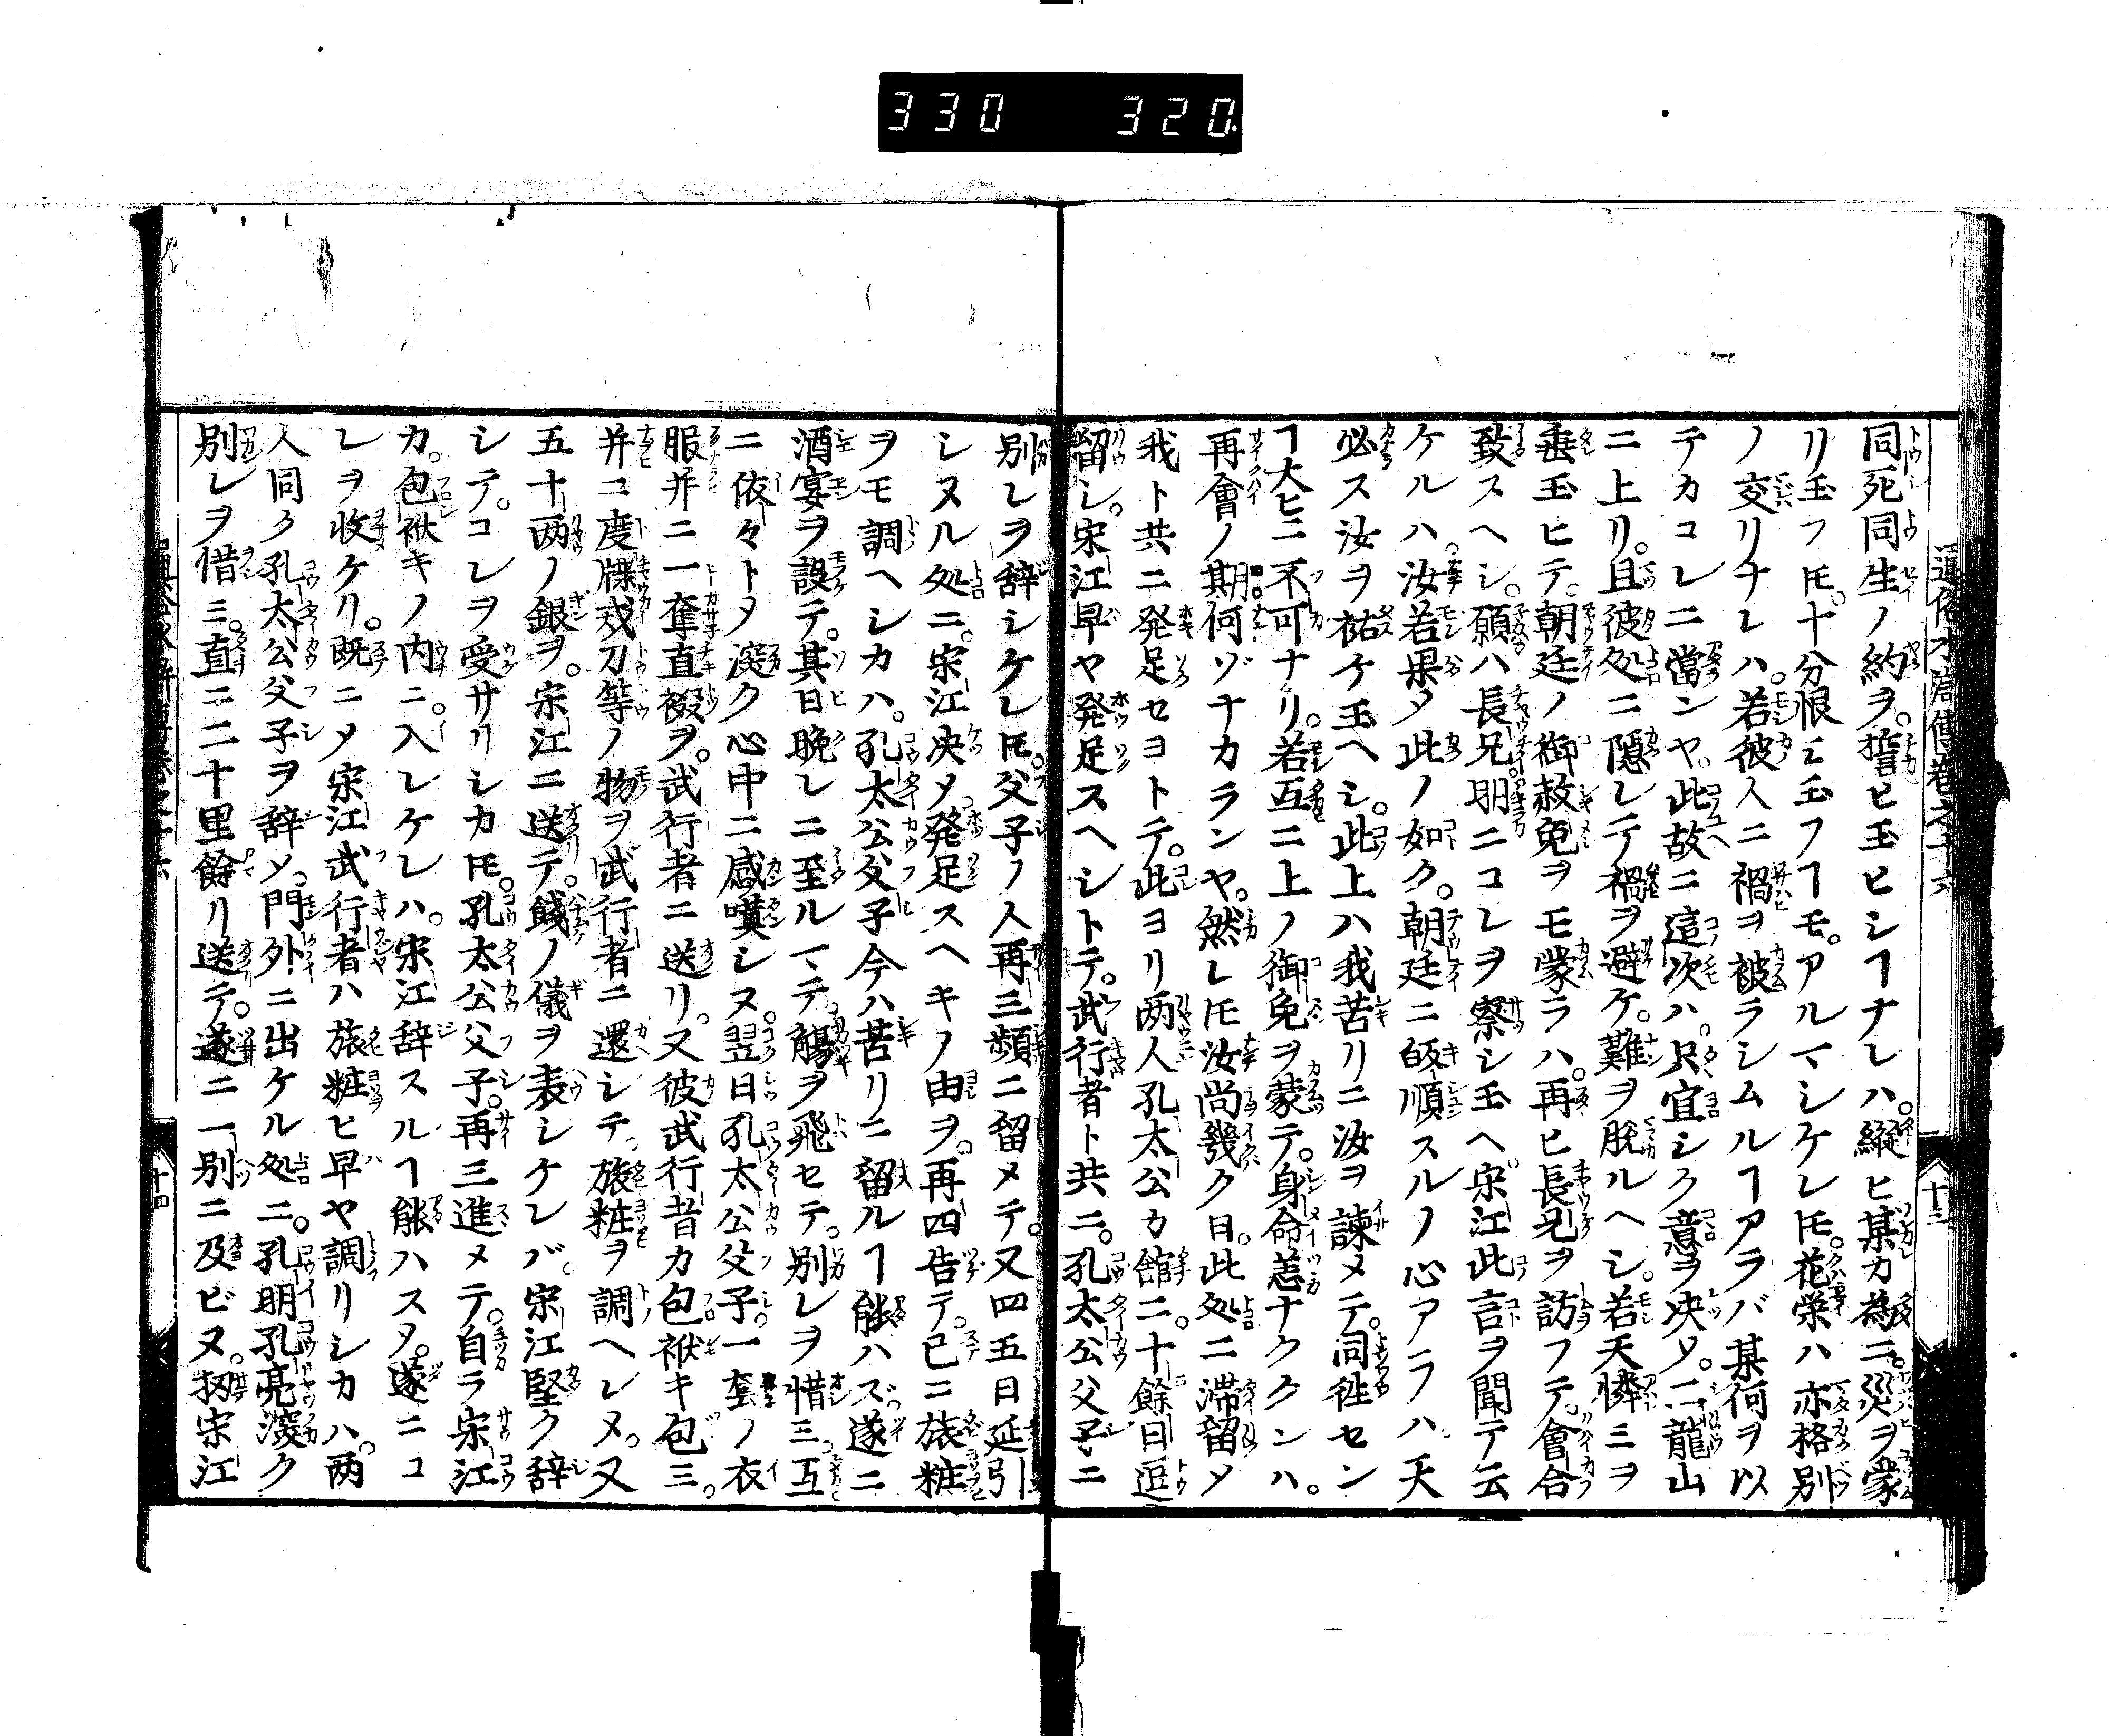 330 320
通俗水滸傳卷之十六
十三
同死同生ノ約ヲ。誓ヒ玉ヒシヿナレハ。縦ヒ某カ為ニ。災ヲ蒙
リ玉フ𪜈。十分恨ミ玉フヿモ。アルマシケレ𪜈。花栄ハ亦格別
ノ交リナレハ。若彼人ニ禍ヲ被ラシムルヿアラバ某何ヲ以
テカコレニ當ンヤ。此故ニ這次ハ。只宜シク意ヲ决メ。二龍山
ニ上リ。且彼処ニ隠レテ禍ヲ避ケ。難ヲ脱ルヘシ。若天憐ミヲ
垂玉ヒテ。朝廷ノ御赦免ヲモ蒙ラハ。再ヒ長兄ヲ訪フテ。會合
致スヘシ。願ハ長兄明ニコレヲ察シ玉ヘ。宋江此言ヲ聞テ云
ケルハ。汝若果メ此ノ如ク。朝廷ニ皈順スルノ心アラハ。天
必ス汝ヲ祐ケ玉ヘシ。此上ハ我苦リニ汝ヲ諫メテ。同徃セン
ヿ大ヒニ不可ナリ。若互ニ上ノ御免ヲ蒙テ。身命恙ナククンハ。
再會ノ期。何ゾナカランヤ。然レ𪜈汝尚幾ク日。此処ニ滞留メ
我ト共ニ発足セヨトテ。此ヨリ两人孔太公カ舘ニ。十餘日逗
留シ。宋江早ヤ発足スヘシトテ。武行者ト共ニ。孔太公父子ニ
別レヲ辞シケレ𪜈。父子ノ人再三頻ニ留メテ。又四五日延引
シヌル処ニ。宋江决メ発足スヘキノ由ヲ。再四告テ。已ニ旅粧
ヲモ調ヘシカハ。孔太公父子今ハ苦リニ留ルヿ能ハズ。遂ニ
酒宴ヲ設テ。其日晩レニ至ルマテ。觴ヲ飛セテ。別レヲ惜ミ。互
ニ依々トメ深ク心中ニ感嘆シヌ。翌日孔太公父子。一套ノ衣
服并ニ一奪直裰ヲ。武行者ニ送リ。又彼武行者カ包袱キ包ミ。
并コ度牒戒刀等ノ物ヲ武行者ニ還シテ。旅粧ヲ調ヘレメ。又
五十两ノ銀ヲ。宋江ニ送テ。餞ノ儀ヲ表シケレバ。宋江堅ク辞
シテ。コレヲ受サリシカ𪜈。孔太公父子。再三進メテ。自ラ宋江
カ。包袱キノ内ニ。入レケレハ。宋江辞スルヿ能ハスメ。遂ニコ
レヲ收ケリ。既ニメ宋江武行者ハ旅粧ヒ早ヤ調リシカハ。两
人同ク孔太公父子ヲ辞メ。門外ニ出ケル処ニ。孔明孔亮深ク
別レヲ惜ミ。直ニ二十里餘リ送テ。遂ニ一別ニ及ビヌ。扨宋江
十四